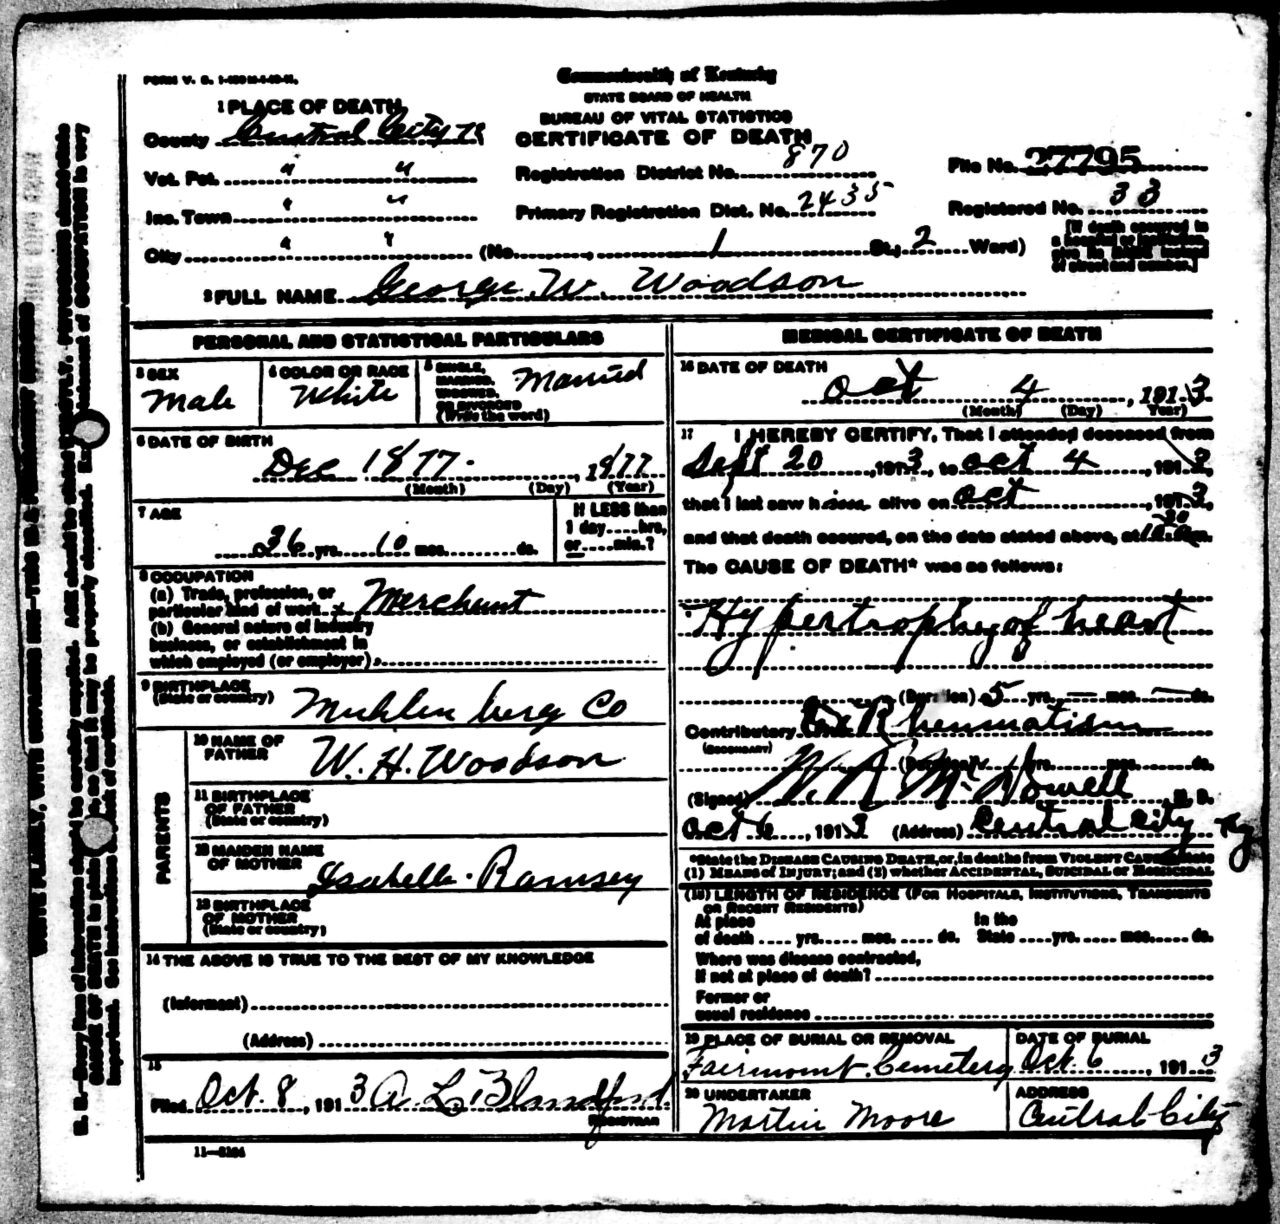 FORM V. S.
Commonwealth of Kentucky
STATE BOARD OF HEALTH
BUREAU OF VITAL STATISTICS
CERTIFICATE OF DEATH
1 PLACE OF DEATH,
County Central City Ky
Vot. Pct. " "
Inc. Town " "
City " " (No. 1 St., 2 Ward)
Registration District No. 870
Primary Registration Dist. No. 2435
File No. 27795
Registered No. 33
[If death occurred in
a hospital or institution,
give its NAME instead
of street and number.]
2 FULL NAME George W. Woodson
PERSONAL AND STATISTICAL PARTICULARS
3 SEX
Male
4 COLOR OR RACE
White
5 SINGLE,
MARRIED,
WIDOWED,
OR DIVORCED
(Write the word)
Married
6 DATE OF BIRTH
Dec 1877. , 1877
(Month) (Day) (Year)
7 AGE
36 yrs. 10 mos. ds.
If LESS than
1 day....hrs,
or....min.?
8 OCCUPATION
(a) Trade, profession, or
particular kind of work x Merchunt
(b) General nature of industry
business, or establishment in
which employed (or employer)
9 BIRTHPLACE
(State or country)
Muhlenberg Co
PARENTS
10 NAME OF
FATHER
W. H. Woodson
11 BIRTHPLACE
OF FATHER
(State or country)
12 MAIDEN NAME
OF MOTHER
Isabella Ramsey
13 BIRTHPLACE
OF MOTHER
(State or country)
14 THE ABOVE IS TRUE TO THE BEST OF MY KNOWLEDGE
(Informant)
(Address)
15
Filed Oct. 8, 1913 A L. Blandford
REGISTRAR
11—3184
MEDICAL CERTIFICATE OF DEATH
16 DATE OF DEATH
Oct 4, 1913
(Month) (Day) (Year)
17 I HEREBY CERTIFY, That I attended deceased from
Sept 20, 1913, to Oct 4, 1913,
that I last saw him alive on Oct, 1913,
and that death occured, on the date stated above, at m.
The CAUSE OF DEATH* was as follows:
Hypertrophy of heart
(Duration) 5 yrs. — mos. — ds.
Contributory Rheumatism
(SECONDARY)
(Duration) yrs. mos. ds.
(Signed) W. R. McDowell, M. D.
Oct 6, 1913 (Address) Central City Ky
*State the DISEASE CAUSING DEATH, or, in deaths from VIOLENT CAUSES, state
(1) MEANS OF INJURY; and (2) whether ACCIDENTAL, SUICIDAL or HOMICIDAL
(18) LENGTH OF RESIDENCE (FOR HOSPITALS, INSTITUTIONS, TRANSIENTS
OR RECENT RESIDENTS)
At place In the
of death .... yrs..... mos. .... ds. State ....yrs..... mos..... ds.
Where was disease contracted,
if not at place of death?
Former or
usual residence
19 PLACE OF BURIAL OR REMOVAL
Fairmount Cemetery
DATE OF BURIAL
Oct. 6, 1913
20 UNDERTAKER
Martin Moore
ADDRESS
Central City
WRITE PLAINLY, WITH UNFADING INK—THIS IS A PERMANENT RECORD
N. B.—Every item of information should be carefully supplied. AGE should be stated EXACTLY. PHYSICIANS should state
CAUSE OF DEATH in plain terms, so that it may be properly classified. Exact statement of OCCUPATION is very
important. See instructions on back of certificate.